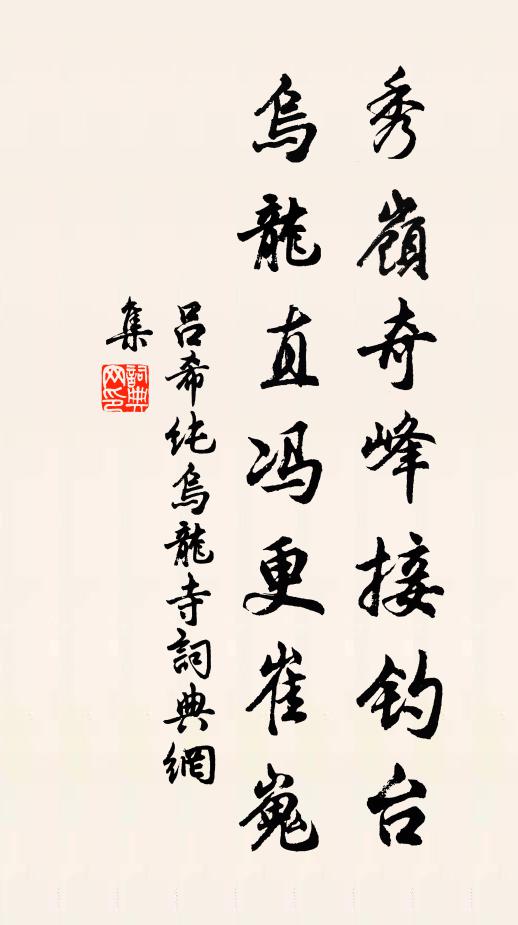 秀嶺奇峰接钓台
烏龍直冯更崔嵬
吕希纯烏龍寺詞典網
集
詞典网印